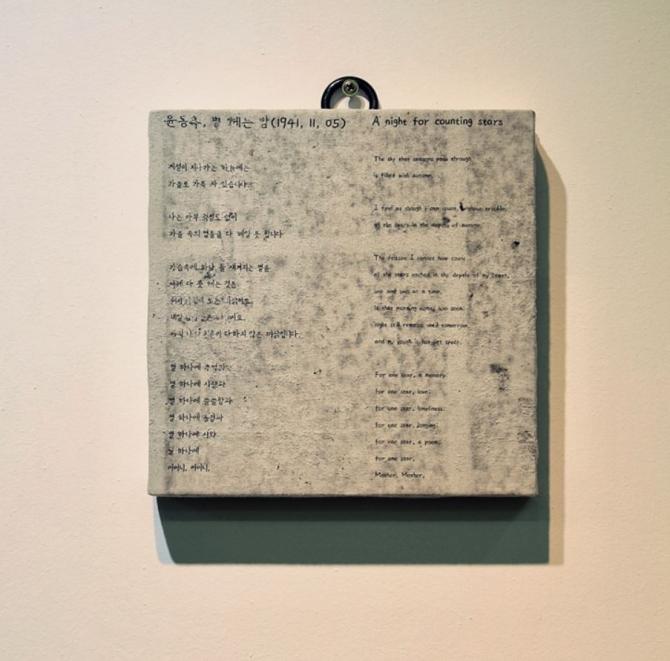 윤동주, 별 헤는 밤(1941, 11, 05)
계절이 지나가는 하늘에는
가을로 가득 차 있습니다.
나는 아무 걱정도 없이
가을 속의 별들을 다 헤일 듯합니다
가슴속에 하나 둘 새겨지는 별을
이제 다 못 헤는 것은
쉬이 아침이 오는 까닭이요,
내일 밤이 남은 까닭이요,
아직 나의 청춘이 다하지 않은 까닭입니다.
별 하나에 추억과
별 하나에 사랑과
별 하나에 쓸쓸함과
별 하나에 동경과
별 하나에 시와
별 하나에
어머니, 어머니,
A night for counting stars
The sky that seasons pass through
is filled with autumn.
I feel as though I can count, without trouble,
all the stars in the depths of autumn.
The reason I cannot now count
all the stars etched in the depths of my heart,
one and two at a time,
is that morning comes too soon,
night still remains until tomorrow
and my youth is not yet spent.
For one star, a memory
for one star, love.
for one star, loneliness.
for one star, longing.
for one star, a poem.
for one star,
Mother, Mother,